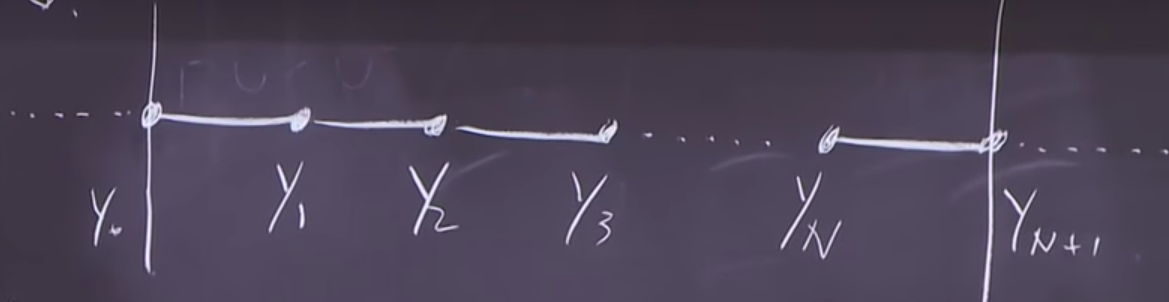 Y₀ Y₁ Y₂ Y₃ Y_N Y_{N+1}